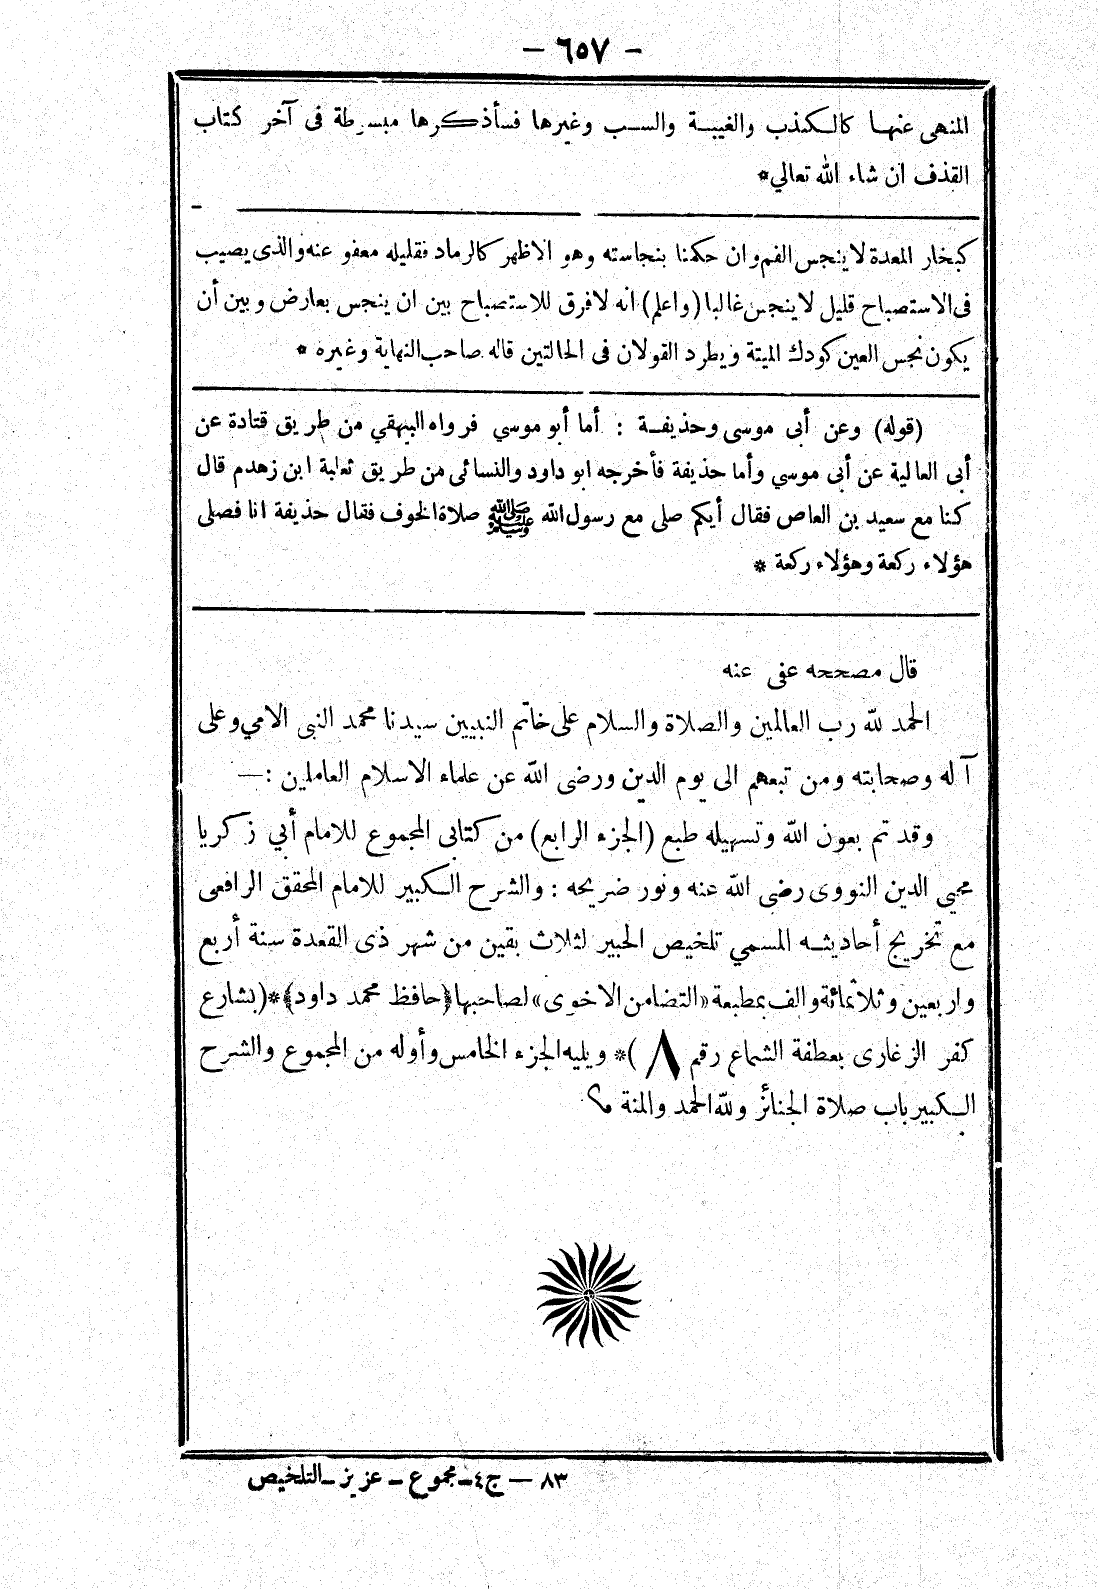 — ٦٥٧ —
المنهى عنها كالكذب والغيبة والسب وغيرها فسأذكرها مبسوطة فى آخر كتاب
القذف ان شاء الله تعالي*
كبخار المعدة لا ينجس الفم وان حكمنا بنجاسته وهو الاظهر كالرماد فقليله معفو عنه والذى يصيب
فى الاستصباح قليل لا ينجس غالبا (واعلم) انه لا فرق للاستصباح بين ان ينجس بعارض وبين أن
يكون نجس العين كودك الميتة ويطرد القولان فى الحالتين قاله صاحب النهاية وغيره *
(قوله) وعن أبى موسى وحذيفة : أما أبو موسي فرواه البيهقي من طريق قتادة عن
أبى العالية عن أبى موسي وأما حذيفة فأخرجه ابو داود والنسائى من طريق ثعلبة ابن زهدم قال
كنا مع سعيد بن العاص فقال أيكم صلى مع رسول الله ﷺ صلاة الخوف فقال حذيفة انا فصلى
هؤلاء ركعة وهؤلاء ركعة *
قال مصححه عفى عنه
الحمد لله رب العالمين والصلاة والسلام على خاتم النبيين سيدنا محمد النبى الامي وعلى
آله وصحابته ومن تبعهم الى يوم الدين ورضى الله عن علماء الاسلام العاملين :—
وقد تم بعون الله وتسهيله طبع (الجزء الرابع) من كتابى المجموع للامام أبي زكريا
محيي الدين النووى رضى الله عنه ونور ضريحه : والشرح الكبير للامام المحقق الرافعى
مع تخريج أحاديثه المسمي تلخيص الحبير لثلاث بقين من شهر ذى القعدة سنة أربع
واربعين وثلاثمائة والف بمطبعة «التضامن الاخوى» لصاحبها ﴿حافظ محمد داود﴾*(بشارع
كفر الزغارى بعطفة الشماع رقم ٨ )* ويليه الجزء الخامس وأوله من المجموع والشرح
الكبير باب صلاة الجنائز ولله الحمد والمنة
٨٣ — ج٤ـ مجموع ـ عزيز ـ التلخيص